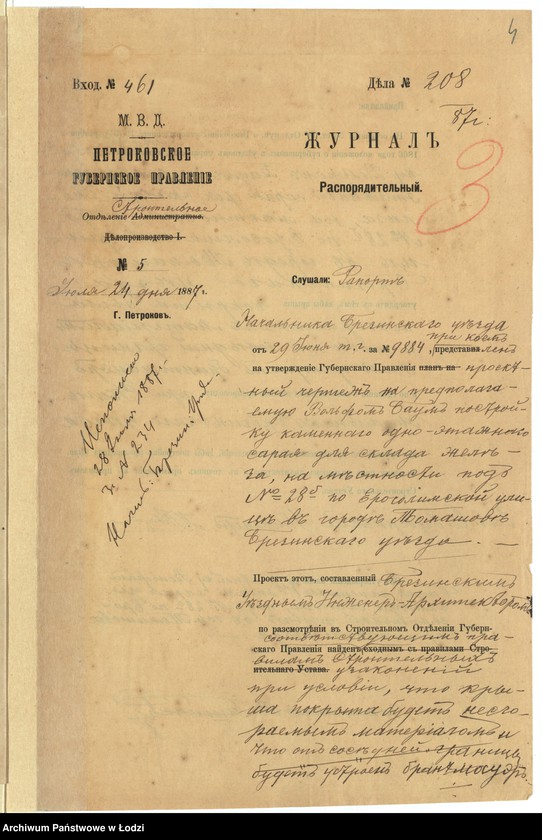 4
Вход. № 461
М. В. Д.
ПЕТРОКОВСКОЕ
ГУБЕРНСКОЕ ПРАВЛЕНІЕ
Строительное
Отдѣленіе Административ.
Дѣлопроизводство I.
№ 5
Іюля 24 дня 1887 г.
Г. Петроковъ.
Исполнено
28 1887 г.
№ 234
Дѣла № 208
87 г:
ЖУРНАЛЪ
3
Распорядительный.
Слушали: Рапортъ
Начальника Брезинскаго уѣзда
при коемъ
отъ 29 Іюня т. г. за № 9884, представленъ
на утвержденіе Губернскаго Правленія планъ на проект-
ный чертежъ на предполага-
емую Вольфомъ Саумъ построй-
ку каменнаго одно-этажнаго
сарая для склада желѣ-
за, на мѣстности подъ
№ 28б по Ерозолимской ули-
цѣ въ городѣ Томашовѣ
Брезинскаго уѣзда. —
Проектъ этотъ, составленный Брезинскимъ
Уѣзднымъ Инженеръ-Архитекторомъ
по разсмотрѣніи въ Строительномъ Отдѣленіи Губерн-
соотвѣтствующимъ пра-
скаго Правленія найденъ сходнымъ съ правилами Стро-
виламъ Строительныхъ
ительнаго Устава. узаконеній
при условіи, что кры-
ша покрыта будетъ несго-
раемымъ матеріаломъ и
что отъ сосѣдней границы
будетъ устроенъ брантмауэръ.
Archiwum Państwowe w Łodzi
Archiwum Państwowe w Łodzi